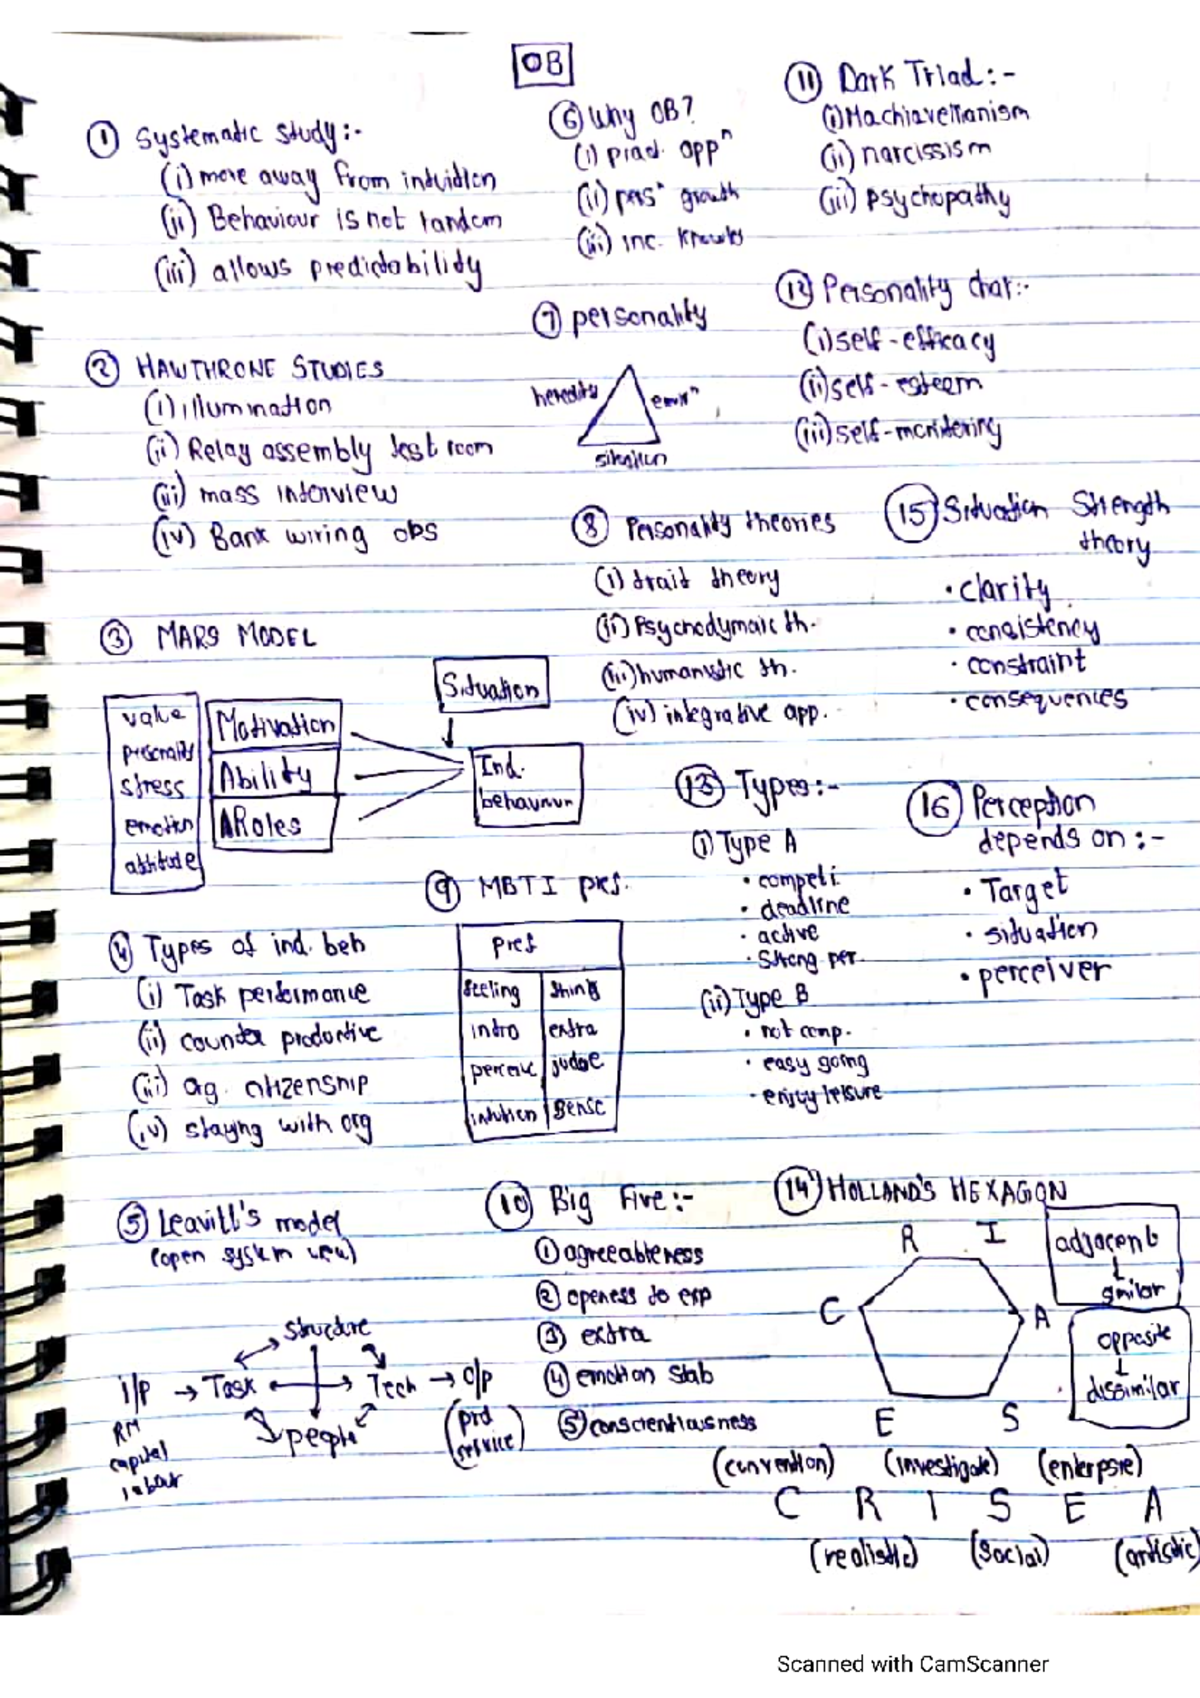 OB
① Systematic study:-
(i) move away from intuition
(ii) Behaviour is not random
(iii) allows predictability
② HAWTHRONE STUDIES
(i) illumination
(ii) Relay assembly test room
(iii) mass interview
(iv) Bank wiring obs
③ MARS MODEL
value
personality
stress
emotion
attitude
Motivation
Ability
Roles
Situation
Ind.
behaviour
④ Types of ind. beh
(i) Task performance
(ii) counter productive
(iii) og. citizenship
(iv) staying with org
⑤ Leavitt's model
(open system view)
Structure
i/p → Task Tech → o/p
people
RM
capital
labour
(prd
service)
⑥ Why OB?
(i) prad. appⁿ
(ii) persⁿ growth
(iii) inc. knowls
⑦ personality
heredity
envirⁿ
situation
⑧ Personality theories
(i) trait theory
(ii) Psychodymaic th.
(iii) humanistic th.
(iv) integrative app.
⑨ MBTI prs.
pref
feeling thing
intro extra
perceive judge
intution sense
⑩ Big Five:-
① agreeableness
② openess to exp
③ extra
④ emotion stab
⑤ conscientiousness
⑪ Dark Triad:-
(i) Machiavellianism
(ii) narcissism
(iii) psychopathy
⑫ Personality char:-
(i) self-efficacy
(ii) self-esteem
(iii) self-monitoring
⑮ Situation Strength
theory
• clarity
• consistency
• constraint
• consequences
⑬ Types:-
(i) Type A
• competi.
• deadline
• active
• Strong per.
(ii) Type B
• not comp.
• easy going
• enjoy leisure
⑯ Perception
depends on :-
• Target
• situation
• perceiver
⑭ HOLLAND'S HEXAGON
R I
C A
E S
adjacent
↓
similar
opposite
↓
dissimilar
(convention) (investigate) (enterpsie)
C R I S E A
(realistic) (social) (artistic)
Scanned with CamScanner